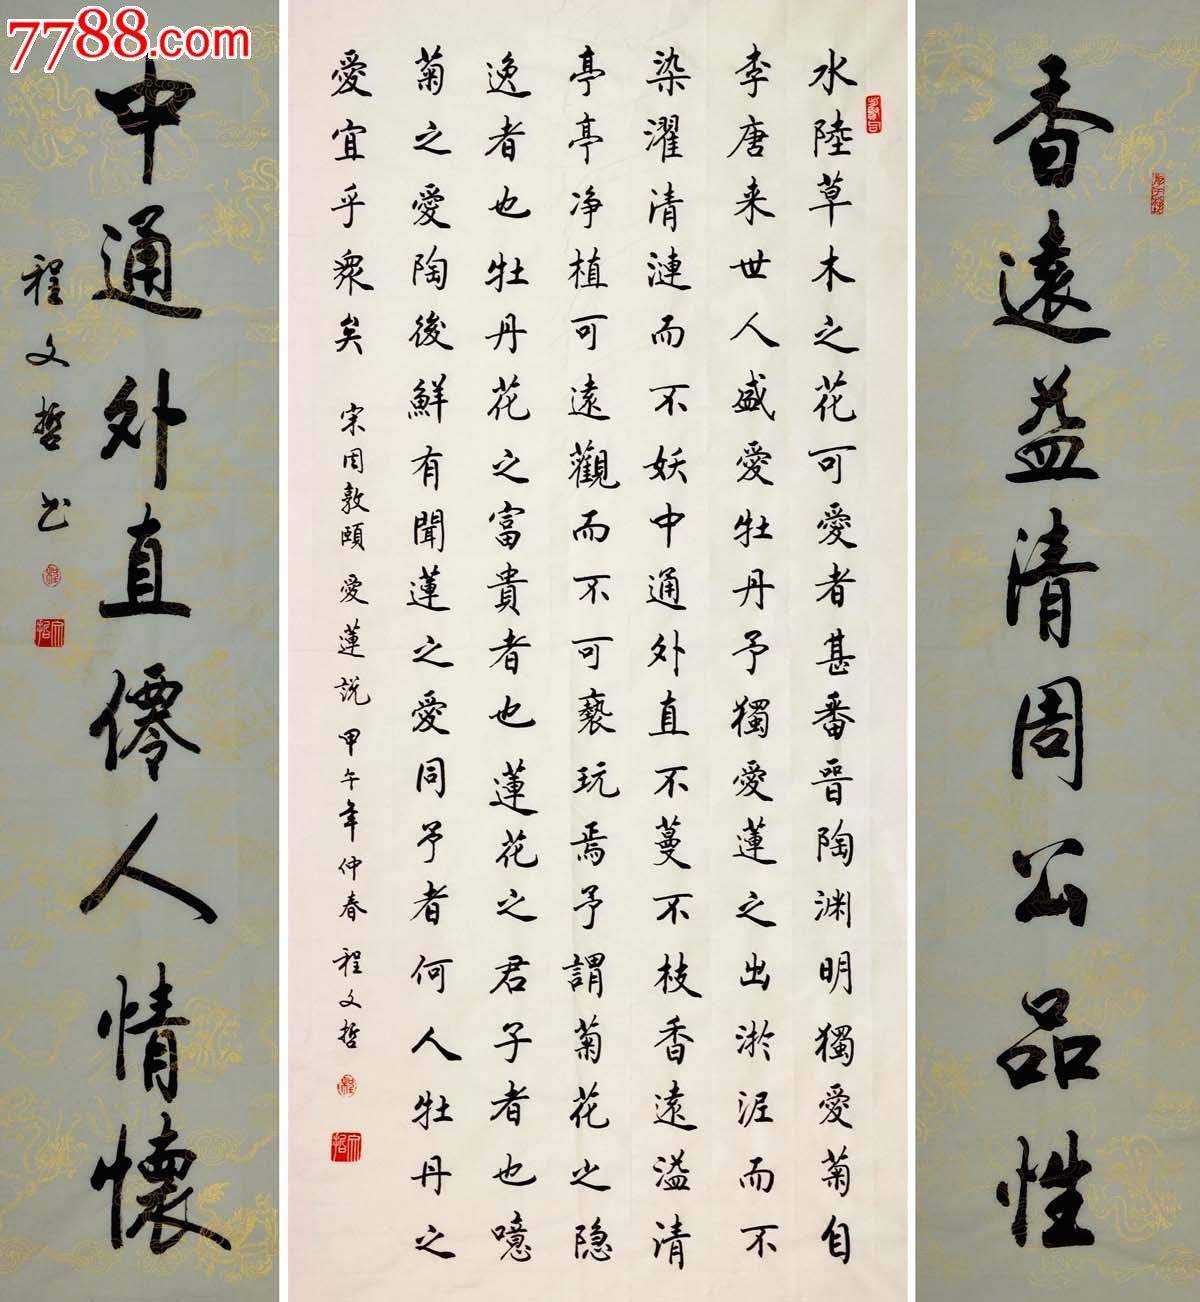 7788.com
香遠益清周公品性
水陸草木之花可愛者甚番晉陶渊明獨愛菊自
李唐来世人盛愛牡丹予獨愛蓮之出淤泥而不
染濯清漣而不妖中通外直不蔓不枝香遠溢清
亭亭净植可遠觀而不可褻玩焉予謂菊花之隐
逸者也牡丹花之富貴者也蓮花之君子者也噫
菊之愛陶後鮮有聞蓮之愛同予者何人牡丹之
愛宜乎衆矣 宋周敦頤 愛蓮說 甲午年仲春 程文哲
中通外直僊人情懷
程文哲书